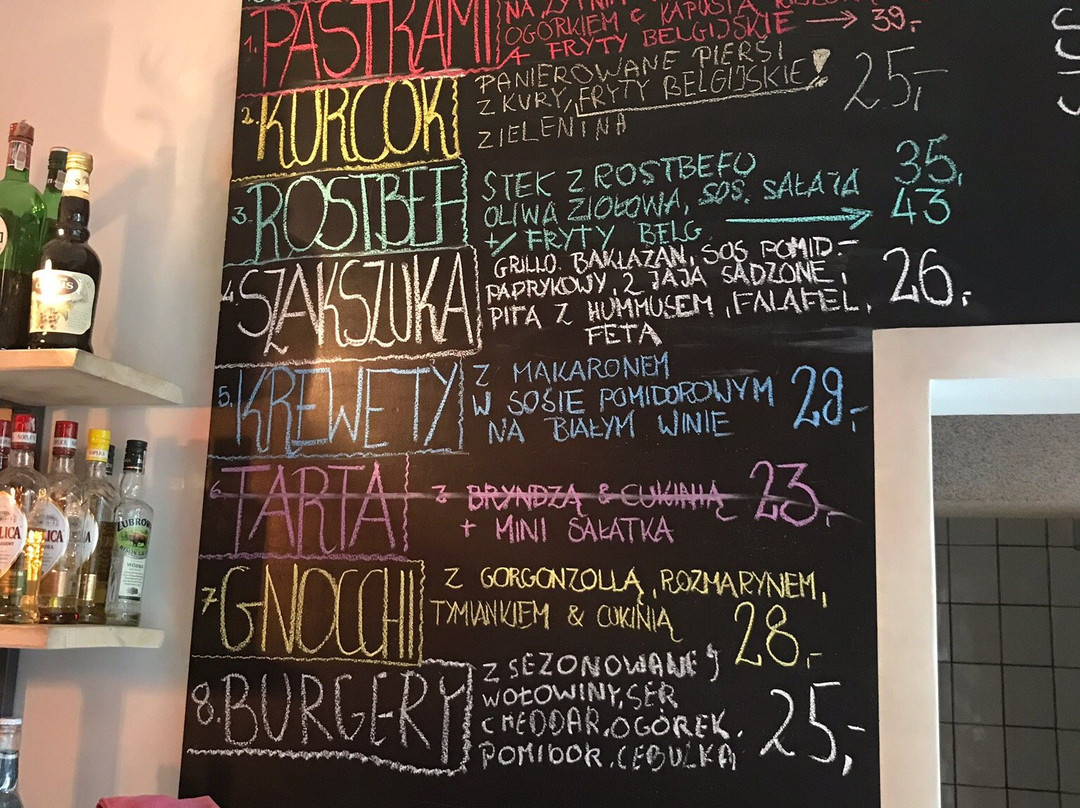 1. PASTRAMI
NA ŻYTNIM
OGÓRKIEM & KAPUSTĄ
+ FRYTY BELGIJSKIE → 39,-
2. KURCOK
PANIEROWANE PIERSI
Z KURY, FRYTY BELGIJSKIE!
ZIELENINA
25,-
3. ROSTBEF
STEK Z ROSTBEFU
OLIWA ZIOŁOWA, SOS. SAŁATA
+/ FRYTY BELG.
35,
43
4. SZAKSZUKA
GRILLO. BAKŁAŻAN, SOS POMID-
PAPRYKOWY, 2 JAJA SADZONE,
PITA Z HUMMUSEM, FALAFEL,
FETA
26,-
5. KREWETY
Z MAKARONEM
W SOSIE POMIDOROWYM
NA BIAŁYM WINIE
29,-
6. TARTA
Z BRYNDZĄ & CUKINIĄ
+ MINI SAŁATKA
23,-
7. GNOCCHI
Z GORGONZOLLĄ, ROZMARYNEM,
TYMIANKIEM & CUKINIĄ
28,-
8. BURGERY
Z SEZONOWANEJ
WOŁOWINY, SER
CHEDDAR, OGÓREK,
POMIDOR, CEBULKA
25,-
ŻUBRÓWKA